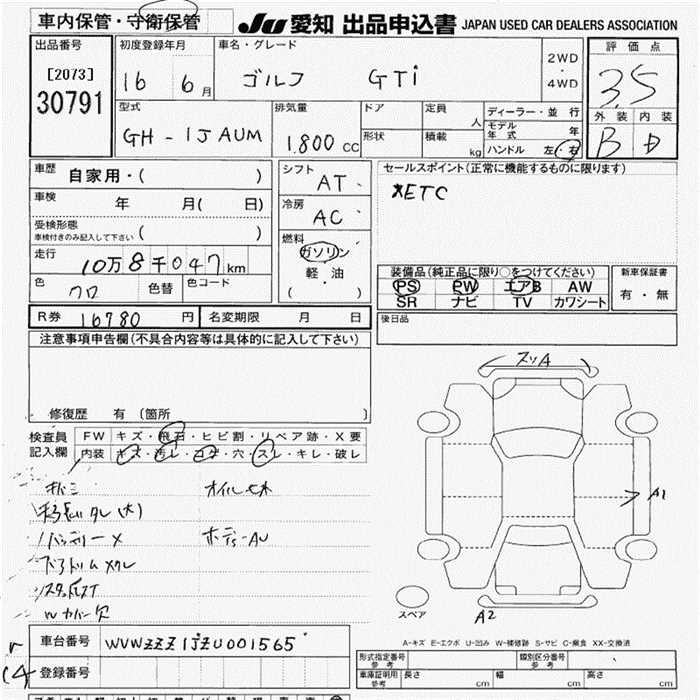 車内保管・守衛保管
JU 愛知 出品申込書 JAPAN USED CAR DEALERS ASSOCIATION
出品番号
[2073]
30791
初度登録年月
16 6月
車名・グレード
ゴルフ GTi
2WD
・
4WD
評価点
3.5
型式
GH-1JAUM
排気量
1.800 cc
ドア
定員
人
形状
積載
kg
ディーラー・並行
モデル年式 年
ハンドル 左・右
外装 内装
B D
車歴 自家用・( )
車検 年 月( 日)
受検形態
車検付きのみ記入して下さい ( )
走行 10万8千047km
色 クロ 色替 色コード
シフト AT
冷房 AC
燃料
ガソリン
軽・油
( )
セールスポイント(正常に機能するものに限ります)
ETC
装備品(純正品に限り○をつけてください)
PS PW エアB AW
SR ナビ TV カワシート
新車保証書
有・無
R券 16780 円 名変期限 月 日
後日品
注意事項申告欄(不具合内容等は具体的に記入して下さい)
修復歴 有 (箇所 )
検査員 FW キズ・飛石・ヒビ割・リペア跡・X要
記入欄 内装 キズ・汚レ・コゲ・穴・スレ・キレ・破レ
スリA
A1
スペア
A2
A-キズ E-エクボ U-凹み W-補修跡 S-サビ C-腐食 XX-交換済
車台番号 WVWZZZ1JZU001565
登録番号
形式指定番号
参考
類別区分番号
参考
車庫証明用
参考
長さ cm 幅 cm 高さ cm